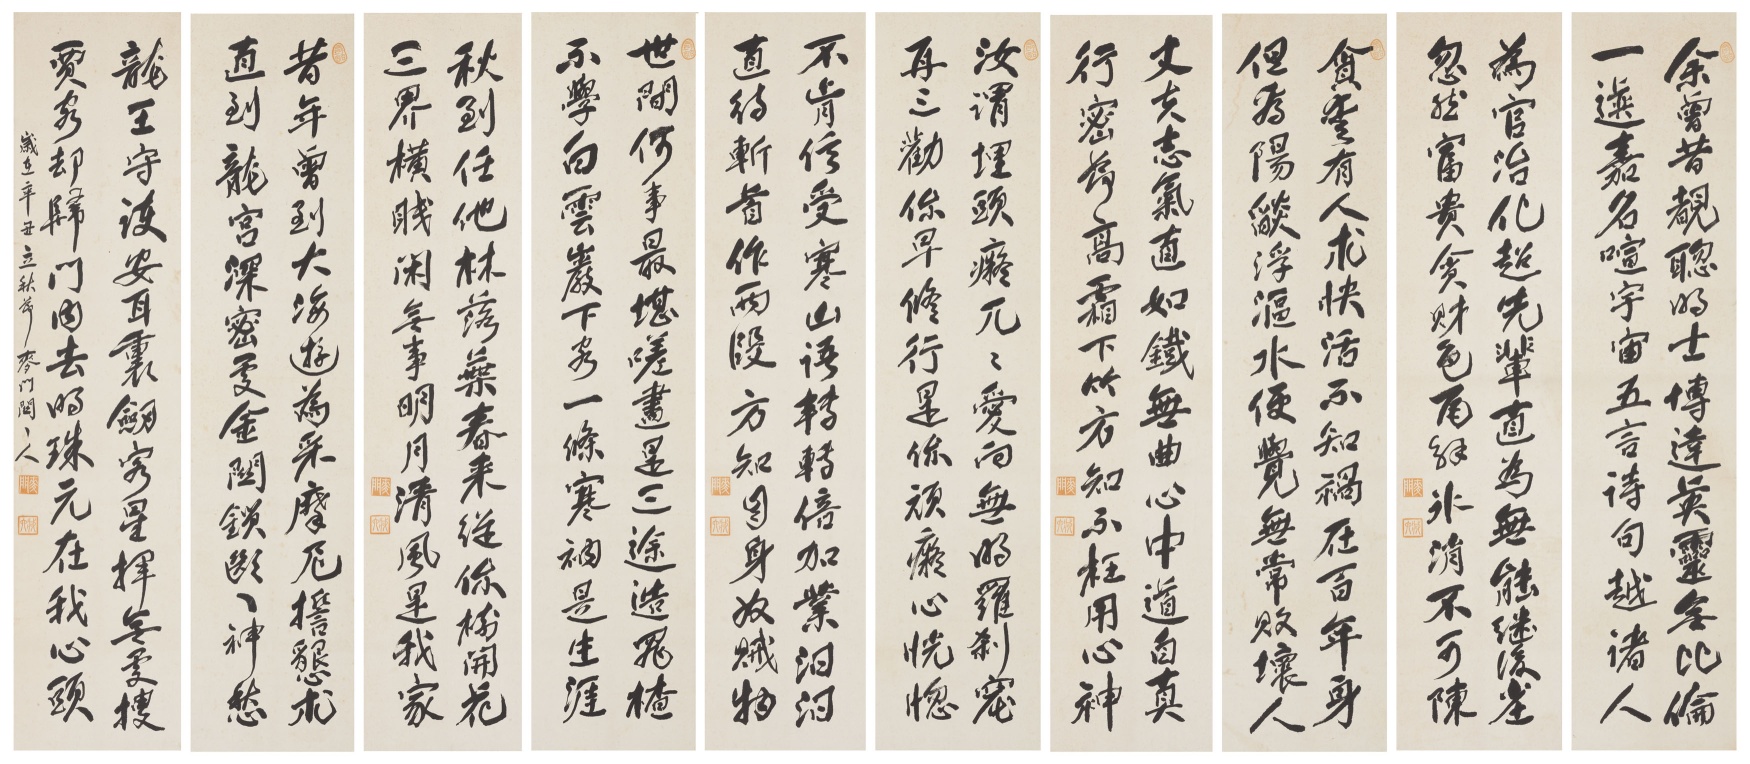 余曾昔覩聰明士博達英靈無比倫
一選嘉名喧宇宙五言詩句越諸人
為官治化超先輩直為無能繼後塵
忽然富貴貪財色瓦解冰消不可陳
貪愛有人求快活不知禍在百年身
但看陽燄浮漚水便覺無常敗壞人
丈夫志氣直如鐵無曲心中道自真
行密節高霜下竹方知不枉用心神
汝謂埋頭癡兀〻愛向無明羅刹窟
再三勸你早修行是你頑癡心恍惚
不肯信受寒山語轉轉倍加業汩汩
直待斬首作兩段方知自身奴賊物
世間何事最堪嗟盡是三途造罪楂
不學白雲巖下客一條寒衲是生涯
秋到任他林落葉春來從你樹開花
三界橫眠閑無事明月清風是我家
昔年曾到大海遊為采摩尼誓懇求
直到龍宮深密處金關鎖斷〻神愁
龍王守護安耳裏劒客星揮無處搜
賈客却歸門內去明珠元在我心頭
歲在辛丑立秋節 麥門閣〻人